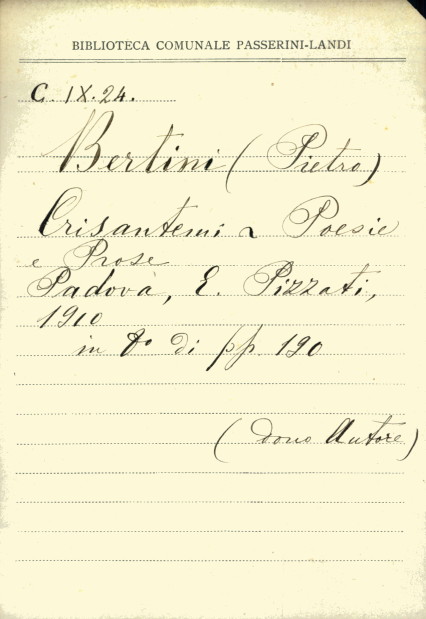 BIBLIOTECA COMUNALE PASSERINI-LANDI
C. IX. 24.
Bertini (Pietro)
Crisantemi ~ Poesie
e Prose
Padova, E. Pizzati,
1910
in 8º di pp. 190
(dono Autore)